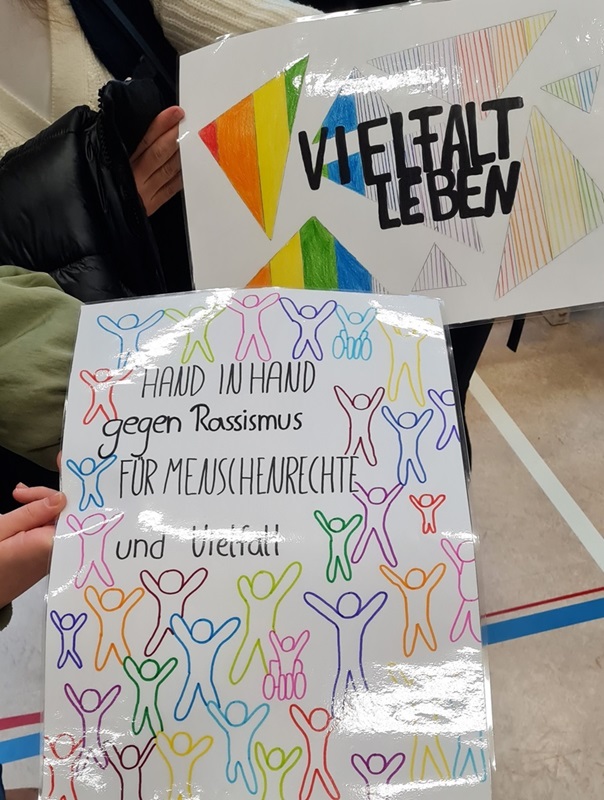 VIELFALT
LEBEN
HAND IN HAND
gegen Rassismus
FÜR MENSCHENRECHTE
und Vielfalt